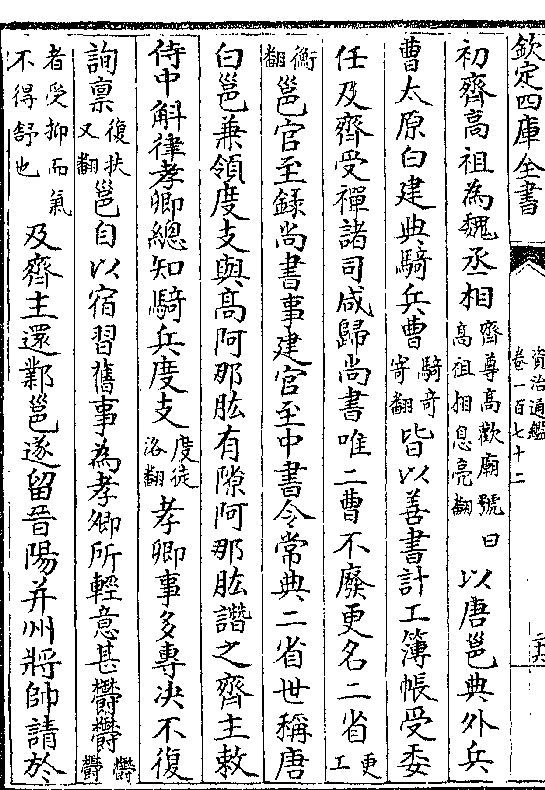 欽定四庫全書
資治通鑑
卷一百七十二
二十六
初齊高祖為魏丞相齊尊高歡廟號曰高祖相息亮翻以唐邕典外兵
曹太原白建典騎兵曹騎奇寄翻皆以善書計工簿帳受委
任及齊受禪諸司咸歸尚書唯二曹不廢更名二省更工
衡翻邕官至録尚書事建官至中書令常典二省世稱唐
白邕兼領度支與高阿那肱有隙阿那肱譖之齊主敕
侍中斛律孝卿總知騎兵度支度徒洛翻孝卿事多專决不復
詢稟復扶又翻邕自以宿習舊事為孝卿所輕意甚鬱鬱鬱鬱
者受抑而氣不得舒也及齊主還鄴邕遂留晉陽并州將帥請於